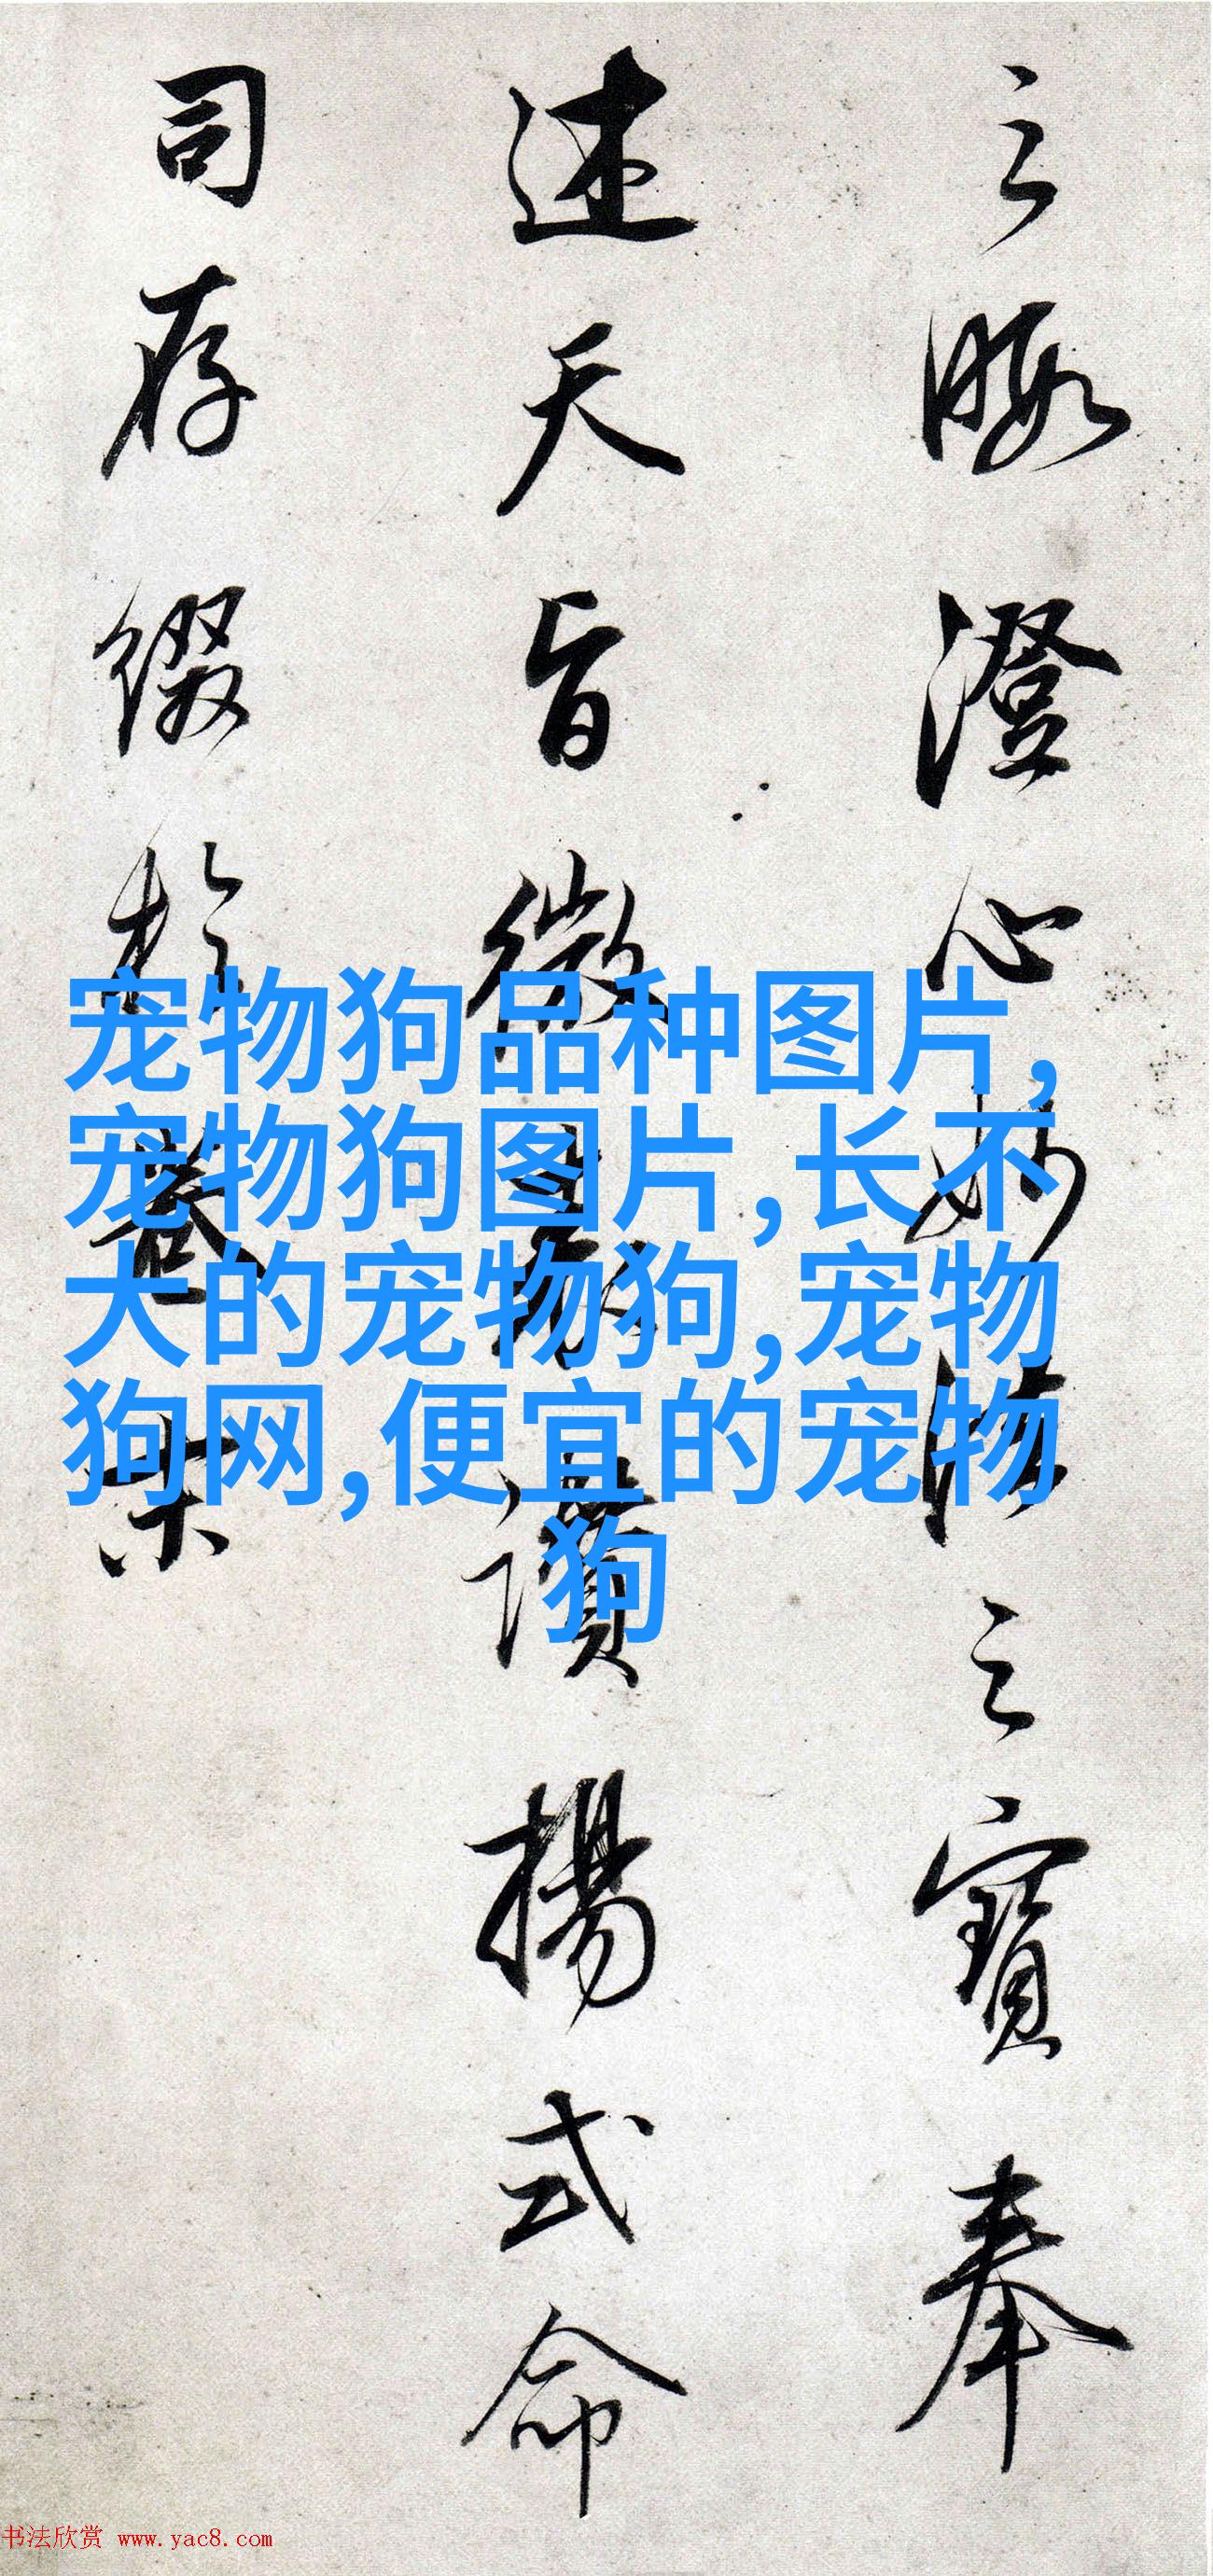 之暇澄心妙法之寶奉
述天旨微表讚揚式命
司存綴於卷末
宠物狗品种图片,
宠物狗图片,长不
大的宠物狗,宠物
狗网,便宜的宠物
狗
书法欣赏 www.yac8.com